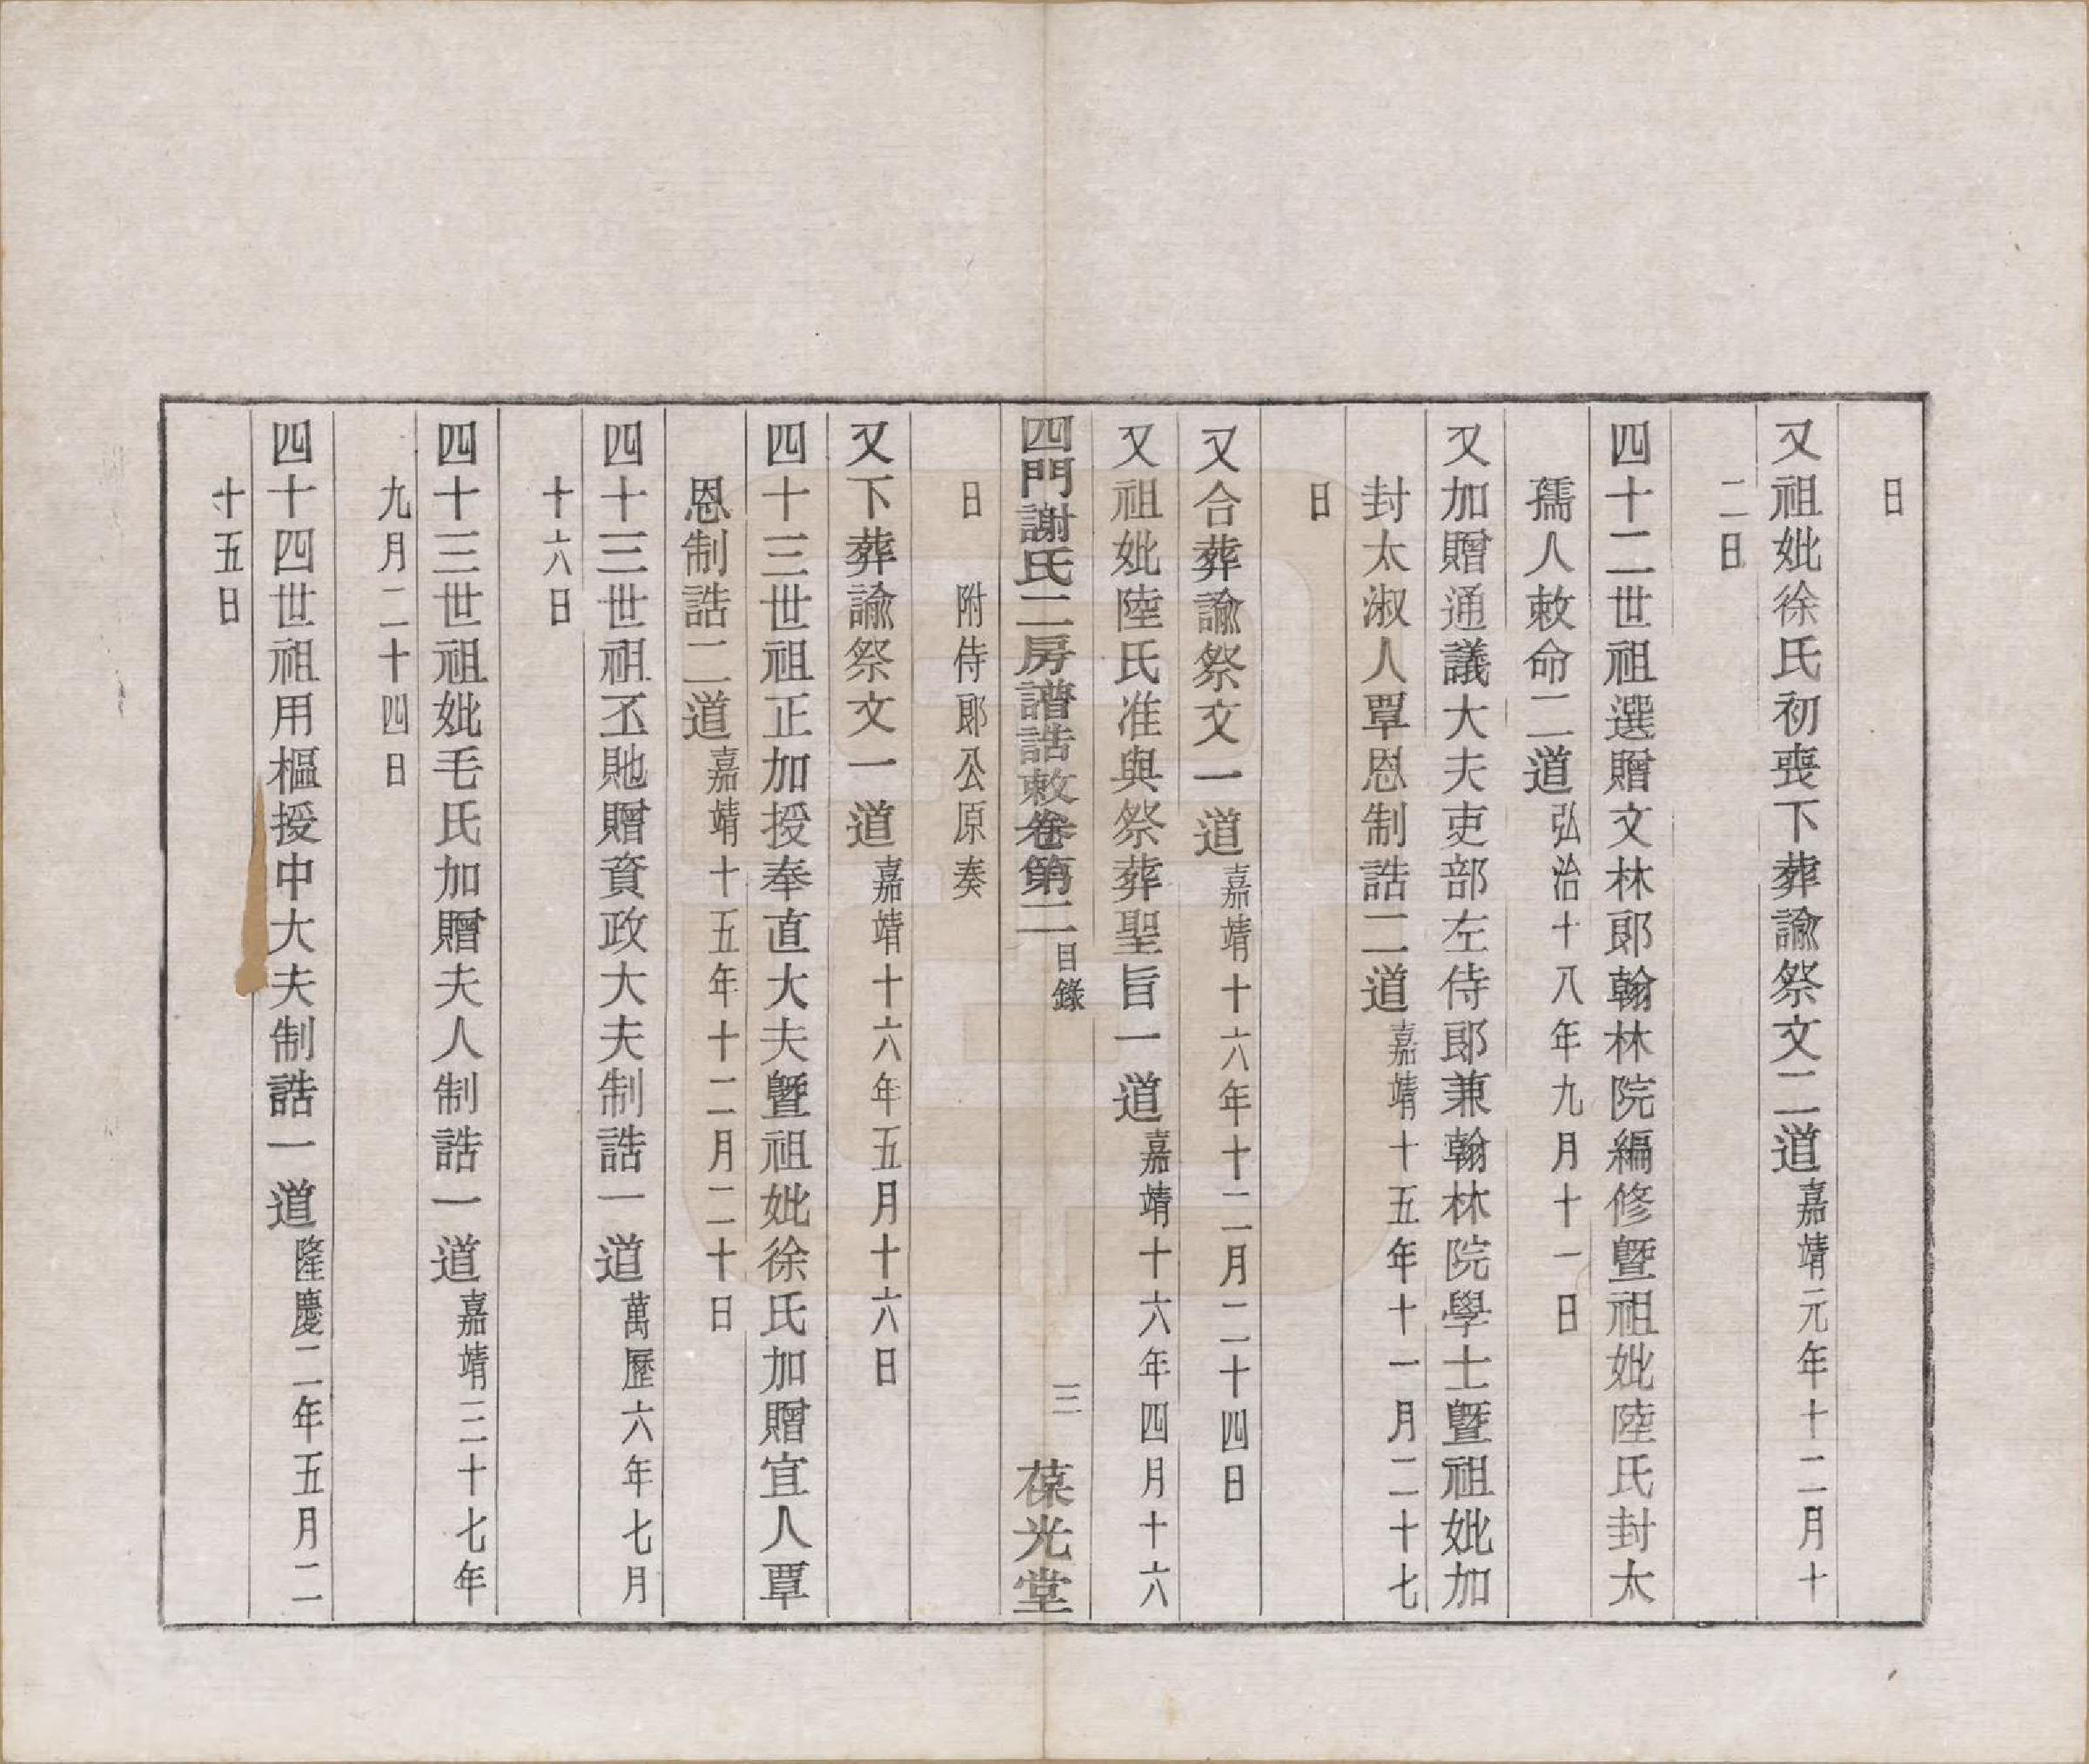 日
又祖妣徐氏初喪下葬諭祭文二道嘉靖元年十二月十
二日
四十二世祖選贈文林郎翰林院編修曁祖妣陸氏封太
孺人敕命二道弘治十八年九月十一日
又加贈通議大夫吏部左侍郎兼翰林院學士曁祖妣加
封太淑人覃恩制誥二道嘉靖十五年十一月二十七
日
又合葬諭祭文一道嘉靖十六年十二月二十四日
又祖妣陸氏准與祭葬聖旨一道嘉靖十六年四月十六
四門謝氏二房譜誥敕卷第二目錄 三 葆光堂
日 附侍郎公原奏
又下葬諭祭文一道嘉靖十六年五月十六日
四十三世祖正加授奉直大夫曁祖妣徐氏加贈宜人覃
恩制誥二道嘉靖十五年十二月二十日
四十三世祖丕貤贈資政大夫制誥一道萬歷六年七月
十六日
四十三世祖妣毛氏加贈夫人制誥一道嘉靖三十七年
九月二十四日
四十四世祖用樞授中大夫制誥一道隆慶二年五月二
十五日